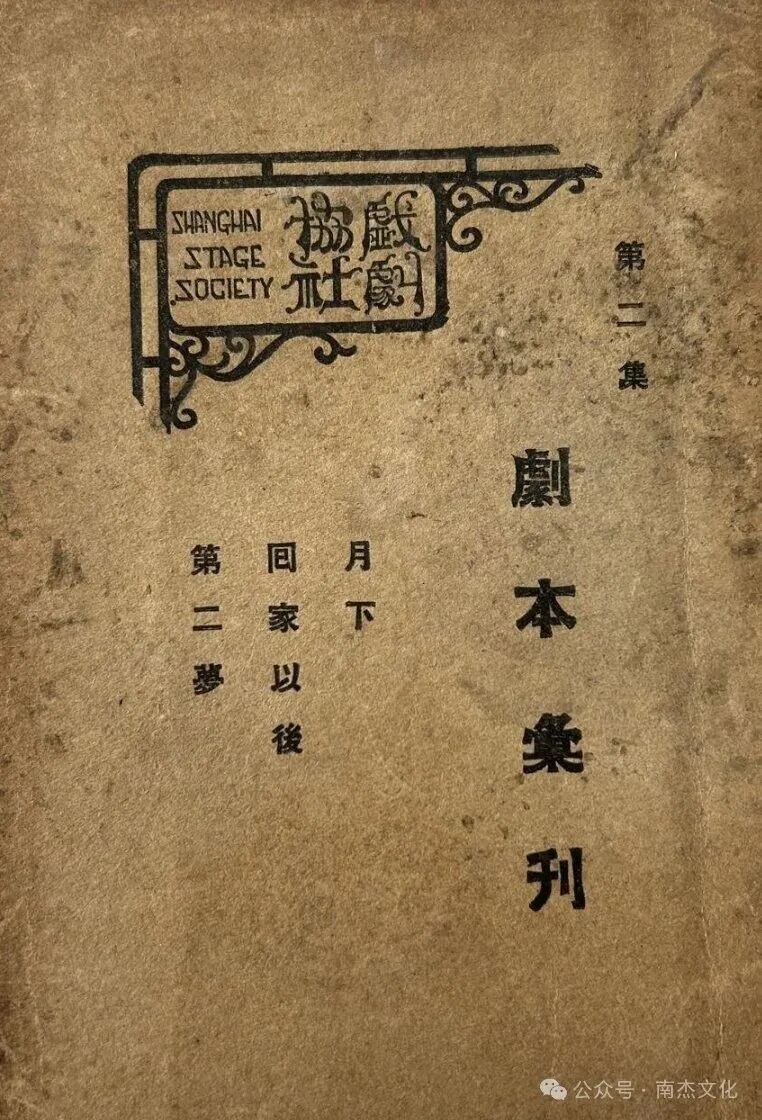 SHANGHAI
STAGE
SOCIETY
戲劇
協社
第二集
劇本彙刊
月下
回家以後
第二夢
公众号·南杰文化